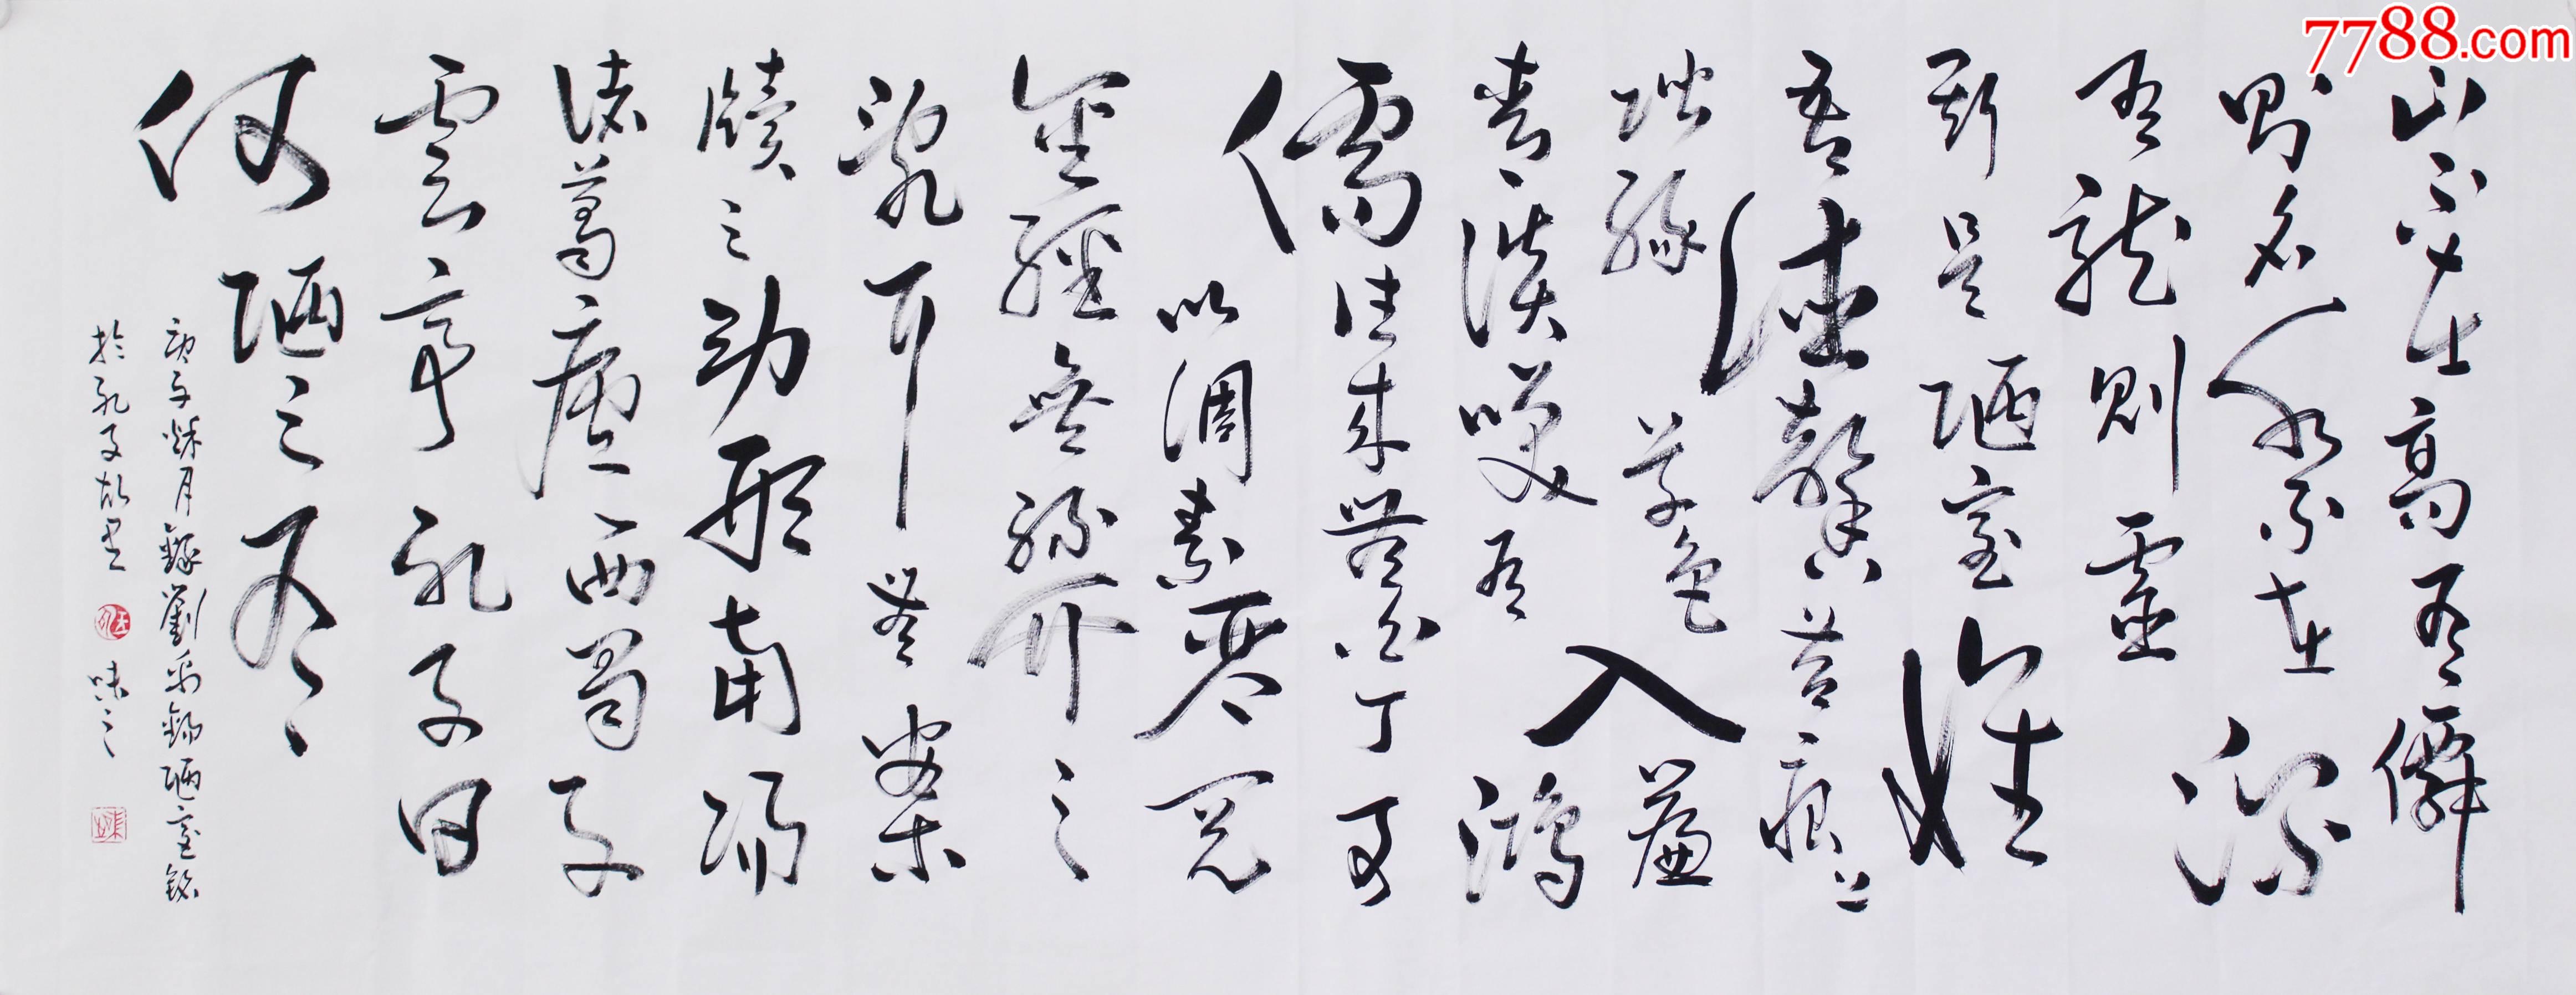 7788.com
山不在高有僊
則名水不在深
有龍則靈
斯是陋室惟
吾德馨苔痕上
階緑草色入簾
青談笑有鴻
儒往來無白丁可
以調素琴閲
金經無絲竹之
亂耳無案
牘之勞形南陽
諸葛廬西蜀子
雲亭孔子曰
何陋之有
庚子秋月録劉禹錫陋室銘
於孔子故里 味之